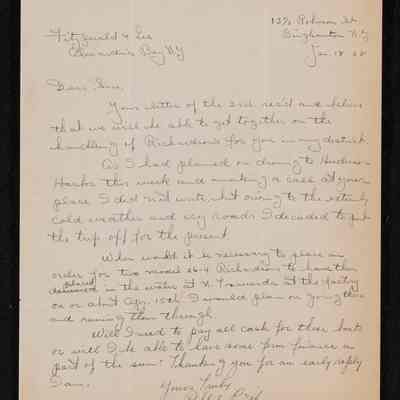 Fitzgerald & Lee
Alexandria Bay N.Y.
Binghamton N.Y.
Jan. 18
Dear Sirs,
Your letter of the 2nd. rec'd and believe
that we will be able to get together on the
handling of Richardsons for you in my district.
As I had planned on driving to
Harbor this week and making a call at your
place I did not write, but owing to the extremely
cold weather and icy roads I decided to put
the trip off for the present.
When would it be necessary to place an
order for two model 26-4 Richardsons to have them
placed
delivered in the water at N. Tonawanda at the factory
on or about Apr. 15th. I would plan on going there
and running them through.
Will I need to pay all cash for these boats
or will I be able to have some firm finance a
part of the sum? Thanking you for an early reply
I am,
Yours Truly